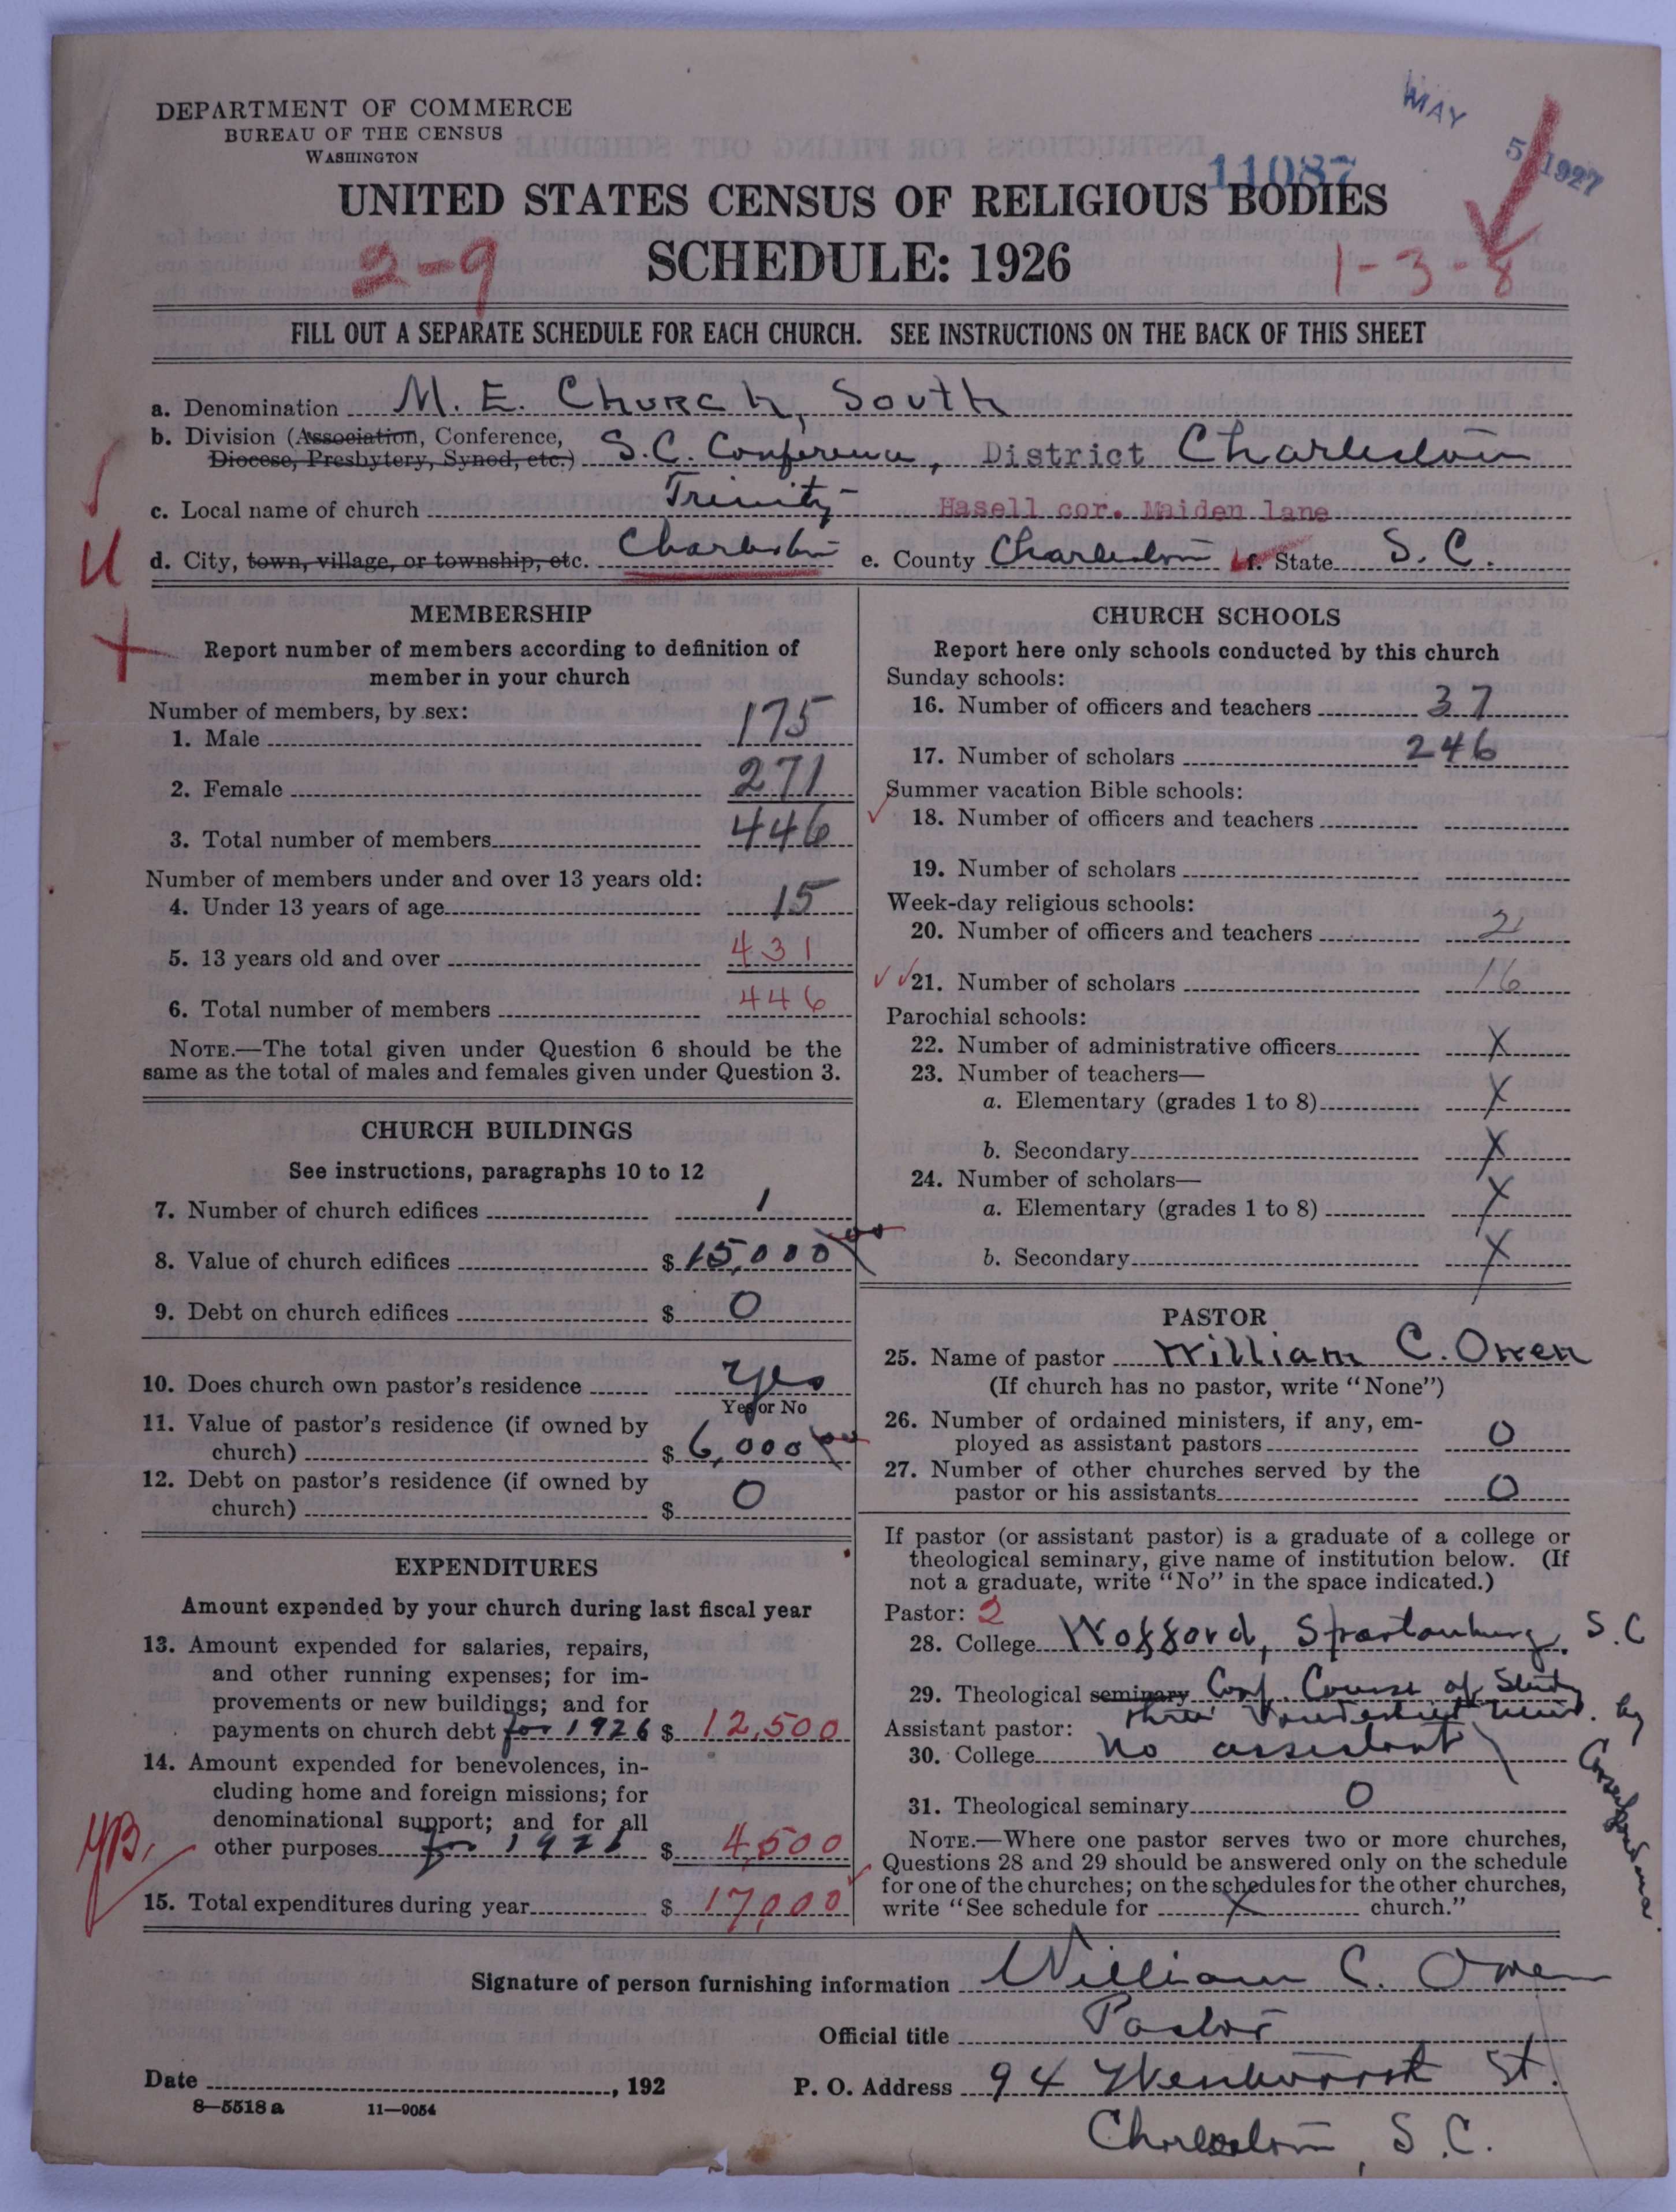 DEPARTMENT OF COMMERCE
BUREAU OF THE CENSUS
WASHINGTON
MAY 5 1927
11087
UNITED STATES CENSUS OF RELIGIOUS BODIES
2-9 SCHEDULE: 1926 1-3-8
FILL OUT A SEPARATE SCHEDULE FOR EACH CHURCH. SEE INSTRUCTIONS ON THE BACK OF THIS SHEET
a. Denomination M. E. Church, South
b. Division (Association, Conference, Diocese, Presbytery, Synod, etc.) S.C. Conference, District Charleston
c. Local name of church Trinity Hasell cor. Maiden lane
d. City, town, village, or township, etc. Charleston e. County Charleston f. State S. C.
MEMBERSHIP
Report number of members according to definition of
member in your church
Number of members, by sex:
1. Male 175
2. Female 271
3. Total number of members 446
Number of members under and over 13 years old:
4. Under 13 years of age 15
5. 13 years old and over 431
6. Total number of members 446
NOTE.—The total given under Question 6 should be the
same as the total of males and females given under Question 3.
CHURCH BUILDINGS
See instructions, paragraphs 10 to 12
7. Number of church edifices 1
8. Value of church edifices $ 15,000
9. Debt on church edifices $ 0
10. Does church own pastor's residence yes
Yes or No
11. Value of pastor's residence (if owned by
church) $ 6,000
12. Debt on pastor's residence (if owned by
church) $ 0
EXPENDITURES
Amount expended by your church during last fiscal year
13. Amount expended for salaries, repairs,
and other running expenses; for im-
provements or new buildings; and for
payments on church debt for 1926 $ 12,500
14. Amount expended for benevolences, in-
cluding home and foreign missions; for
denominational support; and for all
other purposes for 1926 $ 4,500
15. Total expenditures during year $ 17,000
CHURCH SCHOOLS
Report here only schools conducted by this church
Sunday schools:
16. Number of officers and teachers 37
17. Number of scholars 246
Summer vacation Bible schools:
18. Number of officers and teachers
19. Number of scholars
Week-day religious schools:
20. Number of officers and teachers 2
21. Number of scholars 16
Parochial schools:
22. Number of administrative officers X
23. Number of teachers—
a. Elementary (grades 1 to 8) X
b. Secondary X
24. Number of scholars—
a. Elementary (grades 1 to 8) X
b. Secondary X
PASTOR
25. Name of pastor William C. Owen
(If church has no pastor, write "None")
26. Number of ordained ministers, if any, em-
ployed as assistant pastors 0
27. Number of other churches served by the
pastor or his assistants 0
If pastor (or assistant pastor) is a graduate of a college or
theological seminary, give name of institution below. (If
not a graduate, write "No" in the space indicated.)
Pastor: 2
28. College Wofford, Spartanburg, S.C
29. Theological seminary Conf. Course of Study
thru Vanderbilt Univ. by Correspondence.
Assistant pastor:
30. College No assistant
31. Theological seminary 0
NOTE.—Where one pastor serves two or more churches,
Questions 28 and 29 should be answered only on the schedule
for one of the churches; on the schedules for the other churches,
write "See schedule for X church."
Signature of person furnishing information William C. Owen
Official title Pastor
Date , 192 P. O. Address 94 Wentworth St.
8—5518 a 11—9054
Charleston, S.C.